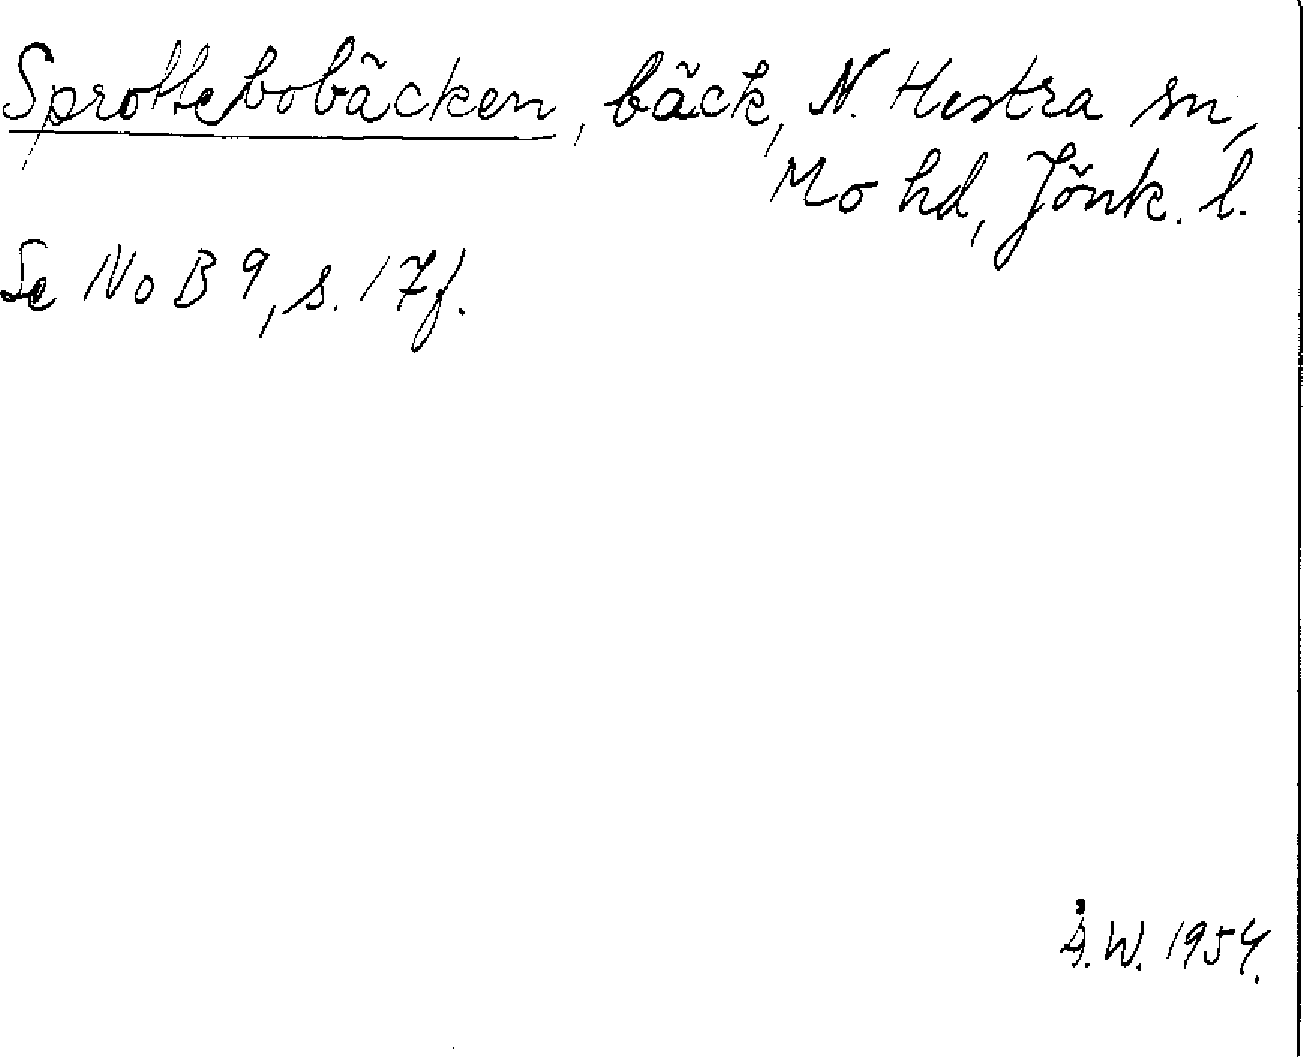 Sprottebobäcken, bäck, N. Hestra sn,
Mo hd, Jönk. l.
Se NoB 9, s. 17f.
Å.W. 1954.